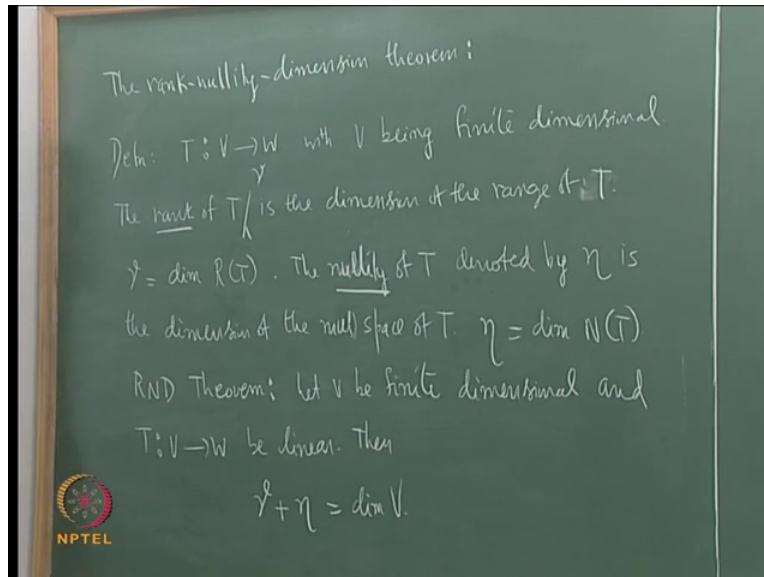 The rank-nullity-dimension theorem:
Defn: T: V → W with V being finite dimensional
The rank of T, r is the dimension of the range of T.
r = dim R(T). The nullity of T denoted by η is
the dimension of the null space of T. η = dim N(T)
RND Theorem: Let V be finite dimensional and
T: V → W be linear. Then
r + η = dim V.
NPTEL